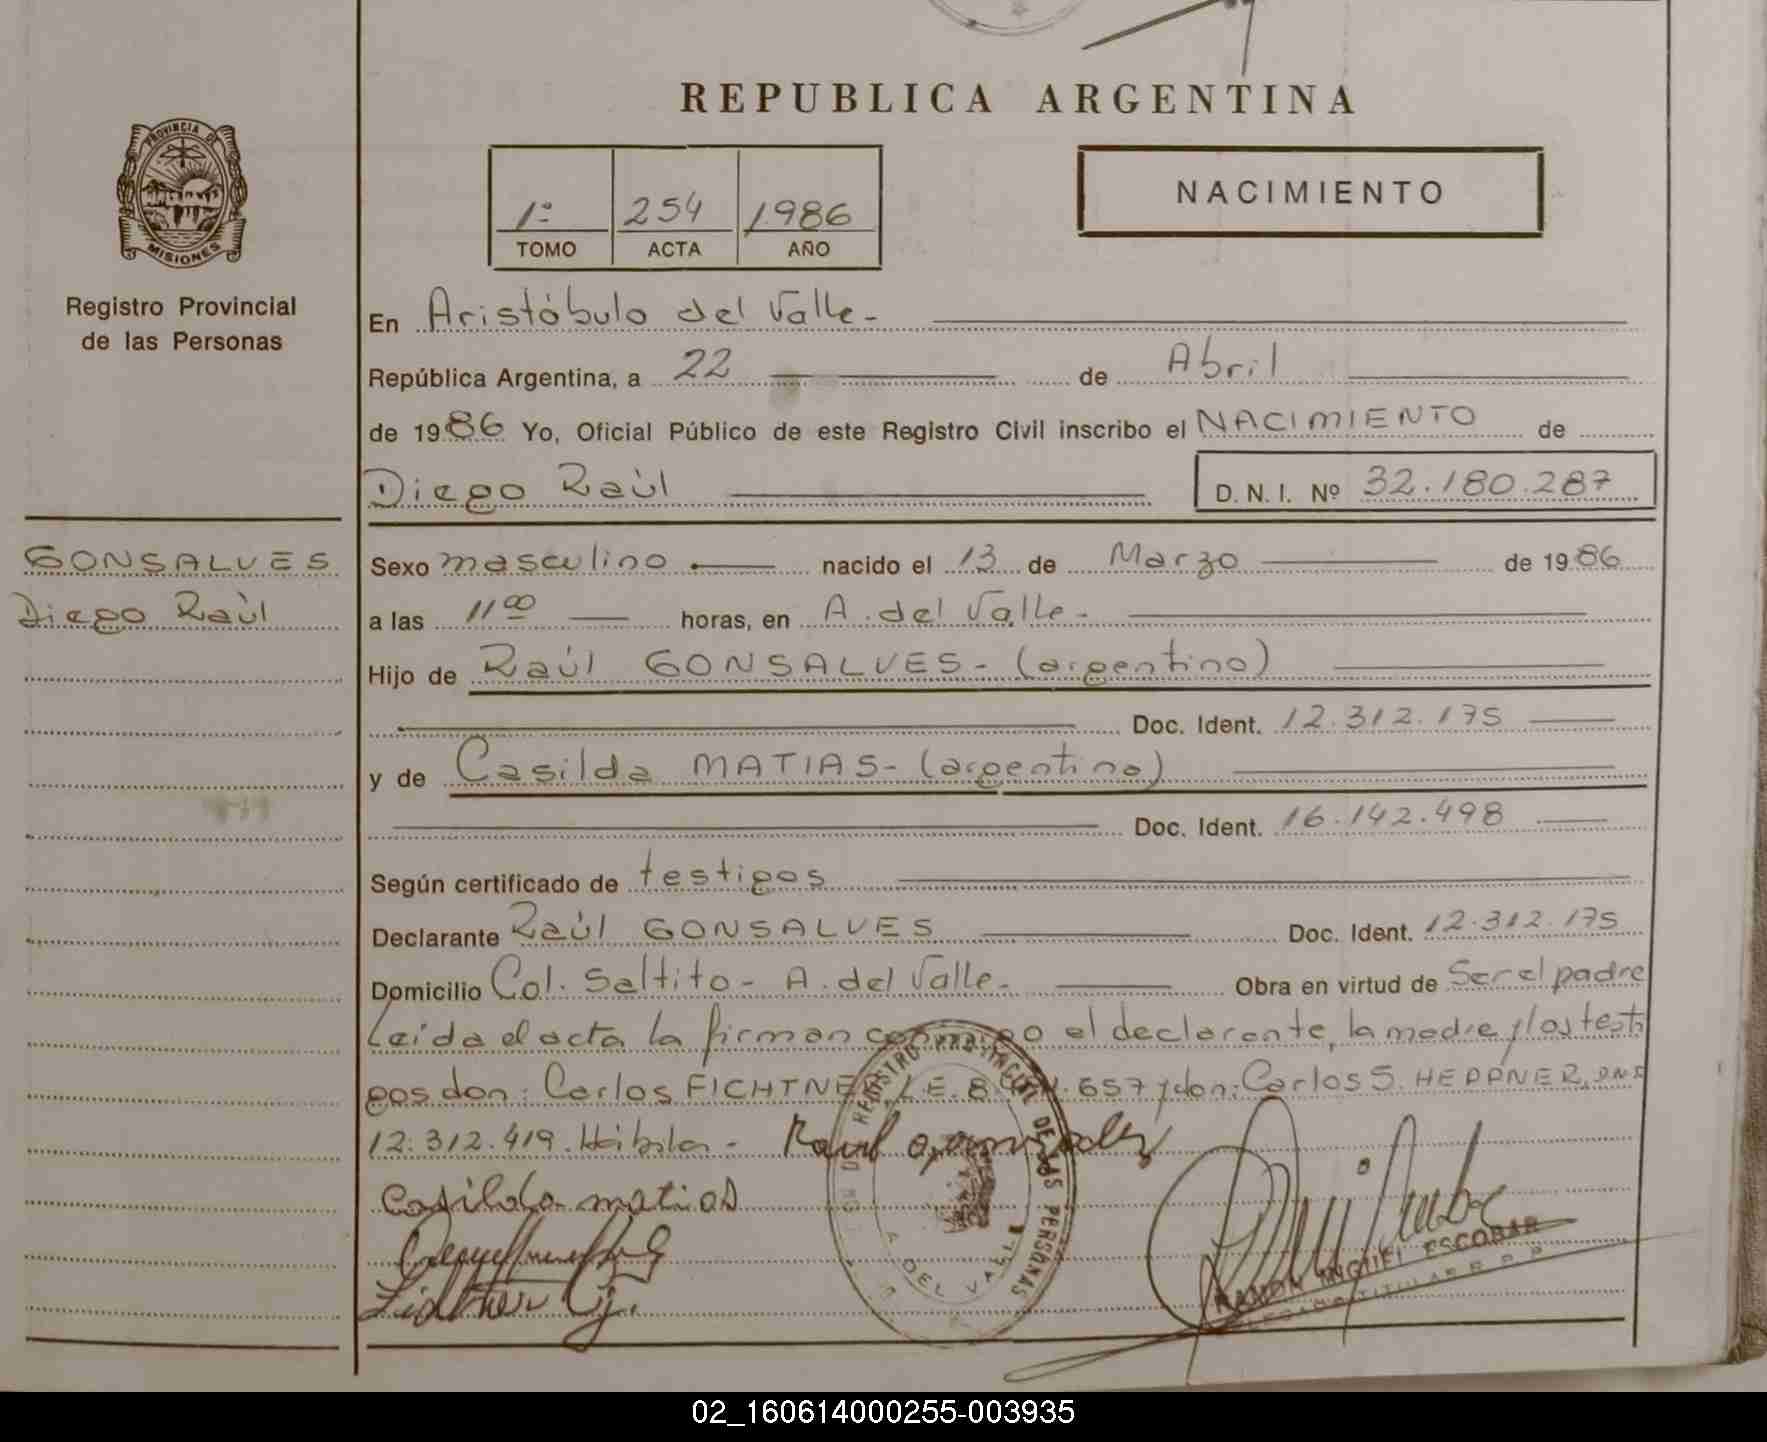 REPUBLICA ARGENTINA
PROVINCIA DE
MISIONES
Registro Provincial
de las Personas
1º 254 1986
TOMO ACTA AÑO
NACIMIENTO
En Aristóbulo del Valle-
República Argentina, a 22 de Abril
de 1986 Yo, Oficial Público de este Registro Civil inscribo el NACIMIENTO de
Diego Raúl D. N. I. Nº 32.180.287
GONSALVES
Diego Raúl
Sexo masculino nacido el 13 de Marzo de 1986
a las 11 00 horas, en A. del Valle-
Hijo de Raúl GONSALVES- (argentino)
Doc. Ident. 12.312.175
y de Casilda MATIAS- (argentina)
Doc. Ident. 16.142.498
Según certificado de testigos
Declarante Raúl GONSALVES Doc. Ident. 12.312.175
Domicilio Col. Saltito- A. del Valle- Obra en virtud de Ser el padre
Leída el acta la firman conmigo el declarante, la madre y los testi
gos don: Carlos FICHTNER, L.E. 8. 657 y don: Carlos S. HEPPNER, DNI
12.312.419. Hábiles-
Raul gonsalves
casilda matias
REGISTRO PROVINCIAL DE LAS PERSONAS
A. DEL VALLE
RAMON MIGUEL ESCOBAR
TITULAR R.P.P.
02_160614000255-003935